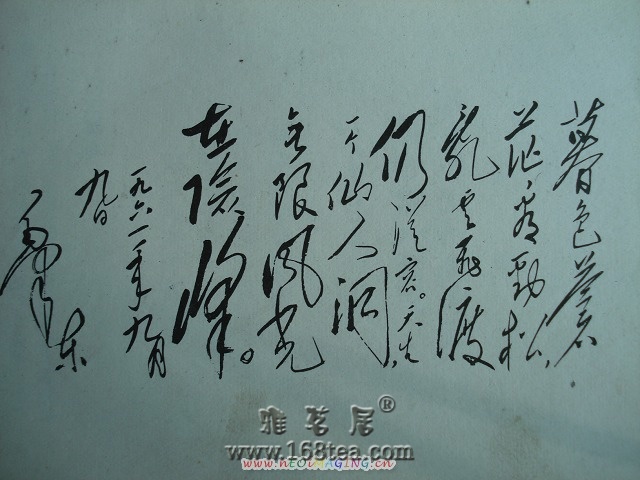 暮色蒼
茫看勁松，
乱云飞渡
仍從容。天生
一个仙人洞，
无限风光
在險峰。
一九六一年九月
九日
毛泽东
雅茗居®
www.168tea.com
www.NEOIMAGING.cn